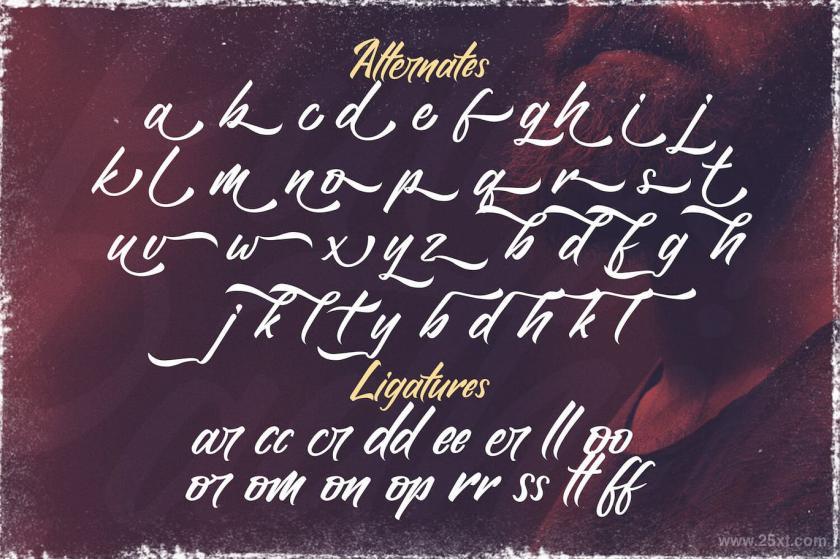 Alternates
a b c d e f g h i j
k l m n o p q r s t
u v w x y z b d f g h
j k l t y b d h k l
Ligatures
ar cc cr dd ee er ll oo
or om on op rr ss tt ff
www.25xt.com